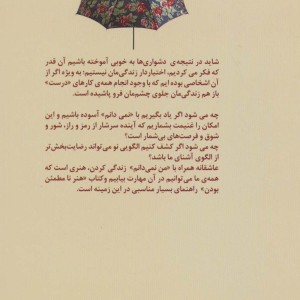 شاید در نتیجه‌ی دشواری‌ها به خوبی آموخته باشیم آن قدر
که فکر می کردیم، اختیاردار زندگی‌مان نیستیم؛ به ویژه اگر از
آن اشخاصی بوده ایم که با وجود انجام همه‌ی کارهای «درست»
باز هم زندگی‌مان جلوی چشم‌مان فرو پاشیده است.
چه می شود اگر یاد بگیریم با «نمی دانم» آسوده باشیم و این
امکان را غنیمت بشماریم که آینده سرشار از رمز و راز، شور و
شوق و فرصت‌های بی‌شمار است؟
چه می شود اگر کشف کنیم الگویی نو می‌تواند رضایت‌بخش‌تر
از الگوی آشنای ما باشد؟
عاشقانه همراه با «من نمی‌دانم» زندگی کردن، هنری است که
همه‌ی ما می‌توانیم در آن مهارت بیابیم وکتاب «هنر نا مطمئن
بودن» راهنمای بسیار مناسبی در این زمینه است.